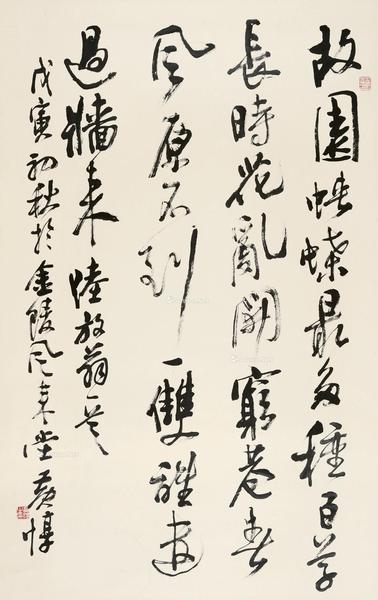 故園蛺蝶最多種百草
長時花亂開窮巷春
风原不到一雙誰遣
過牆来 陸放翁一首
戊寅初秋於金陵风来堂黄惇